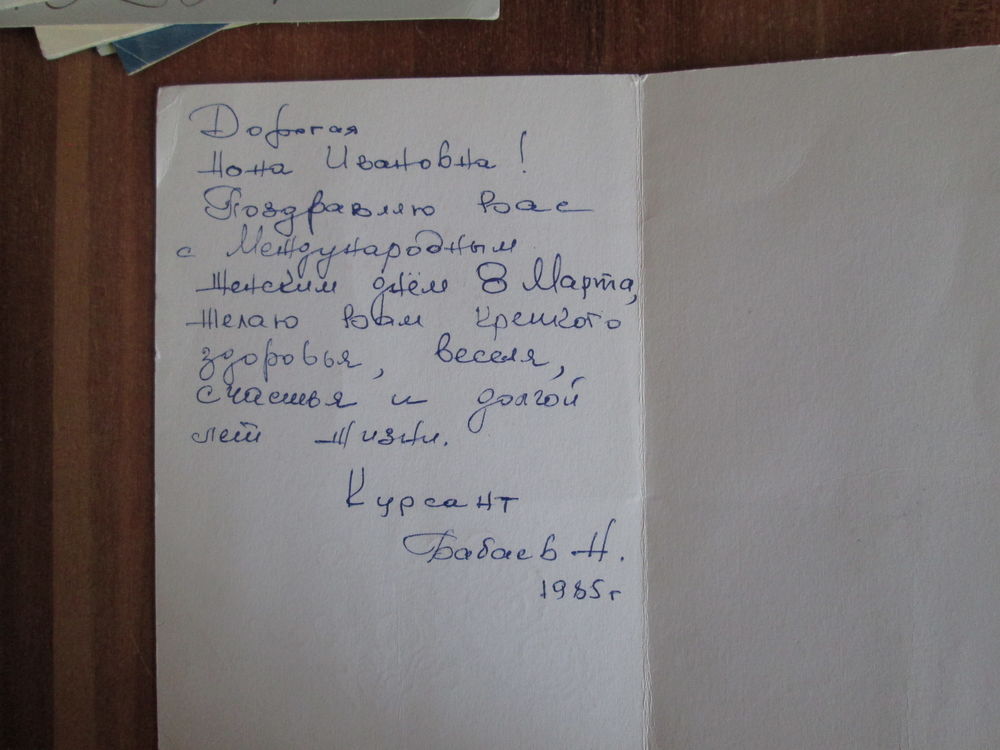 Дорогая
Нона Ивановна!
Поздравляю вас
с Международным
женским днём 8 Марта,
желаю вам крепкого
здоровья, веселя,
счастья и долгой
лет жизни.
Курсант
Бабаев Н.
1985г